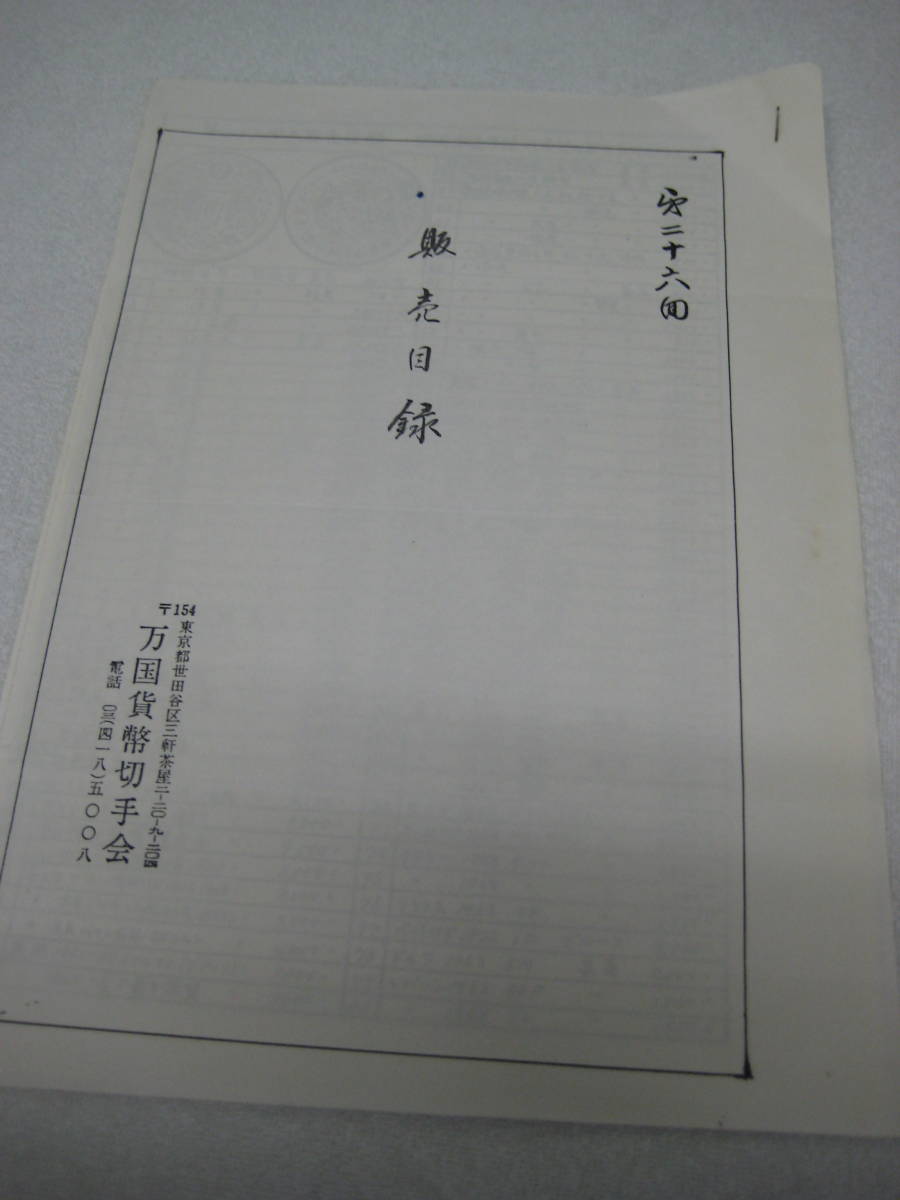 第二十六回
販売目録
〒154
東京都世田谷区三軒茶屋二-二〇-九-二〇四
万国貨幣切手会
電話 〇三(四一八)五〇〇八